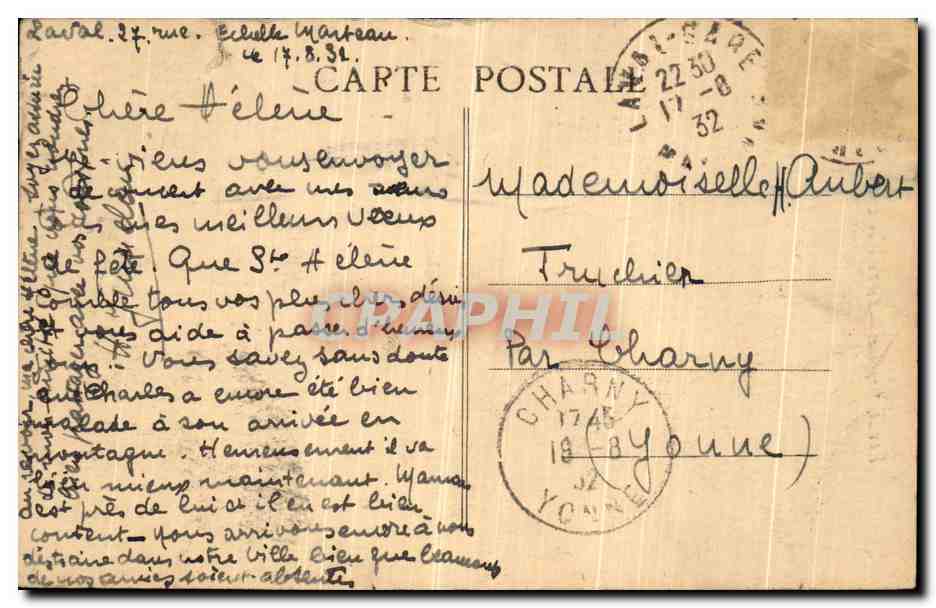 Laval. 27. rue. Echelle Marteau.
le 17.8.32.
CARTE POSTALE
Chère Hélène
viens vous envoyer
avec mes
mes meilleurs vœux
de fête. Que Ste Hélène
comble tous vos plus chers désirs
et vous aide à passer d'heureux
Vous savez sans doute
que Charles a encore été bien
malade à son arrivée en
montagne. Heureusement il va
bien mieux maintenant. Maman
est près de lui et il en est bien
content - Nous arrivons encore à nous
distraire dans notre ville bien que beaucoup
de nos amies soient absentes
au revoir, ma chère Hélène, soyez assurée
de mon amitié que vous
bien partager avec vos
LAVAL-GARE
22 30
17 -8
32
Mademoiselle H. Aubert
Truchier
Par Charny
(Yonne)
CHARNY
17 45
18 -8
32
YONNE
CPAPHIL